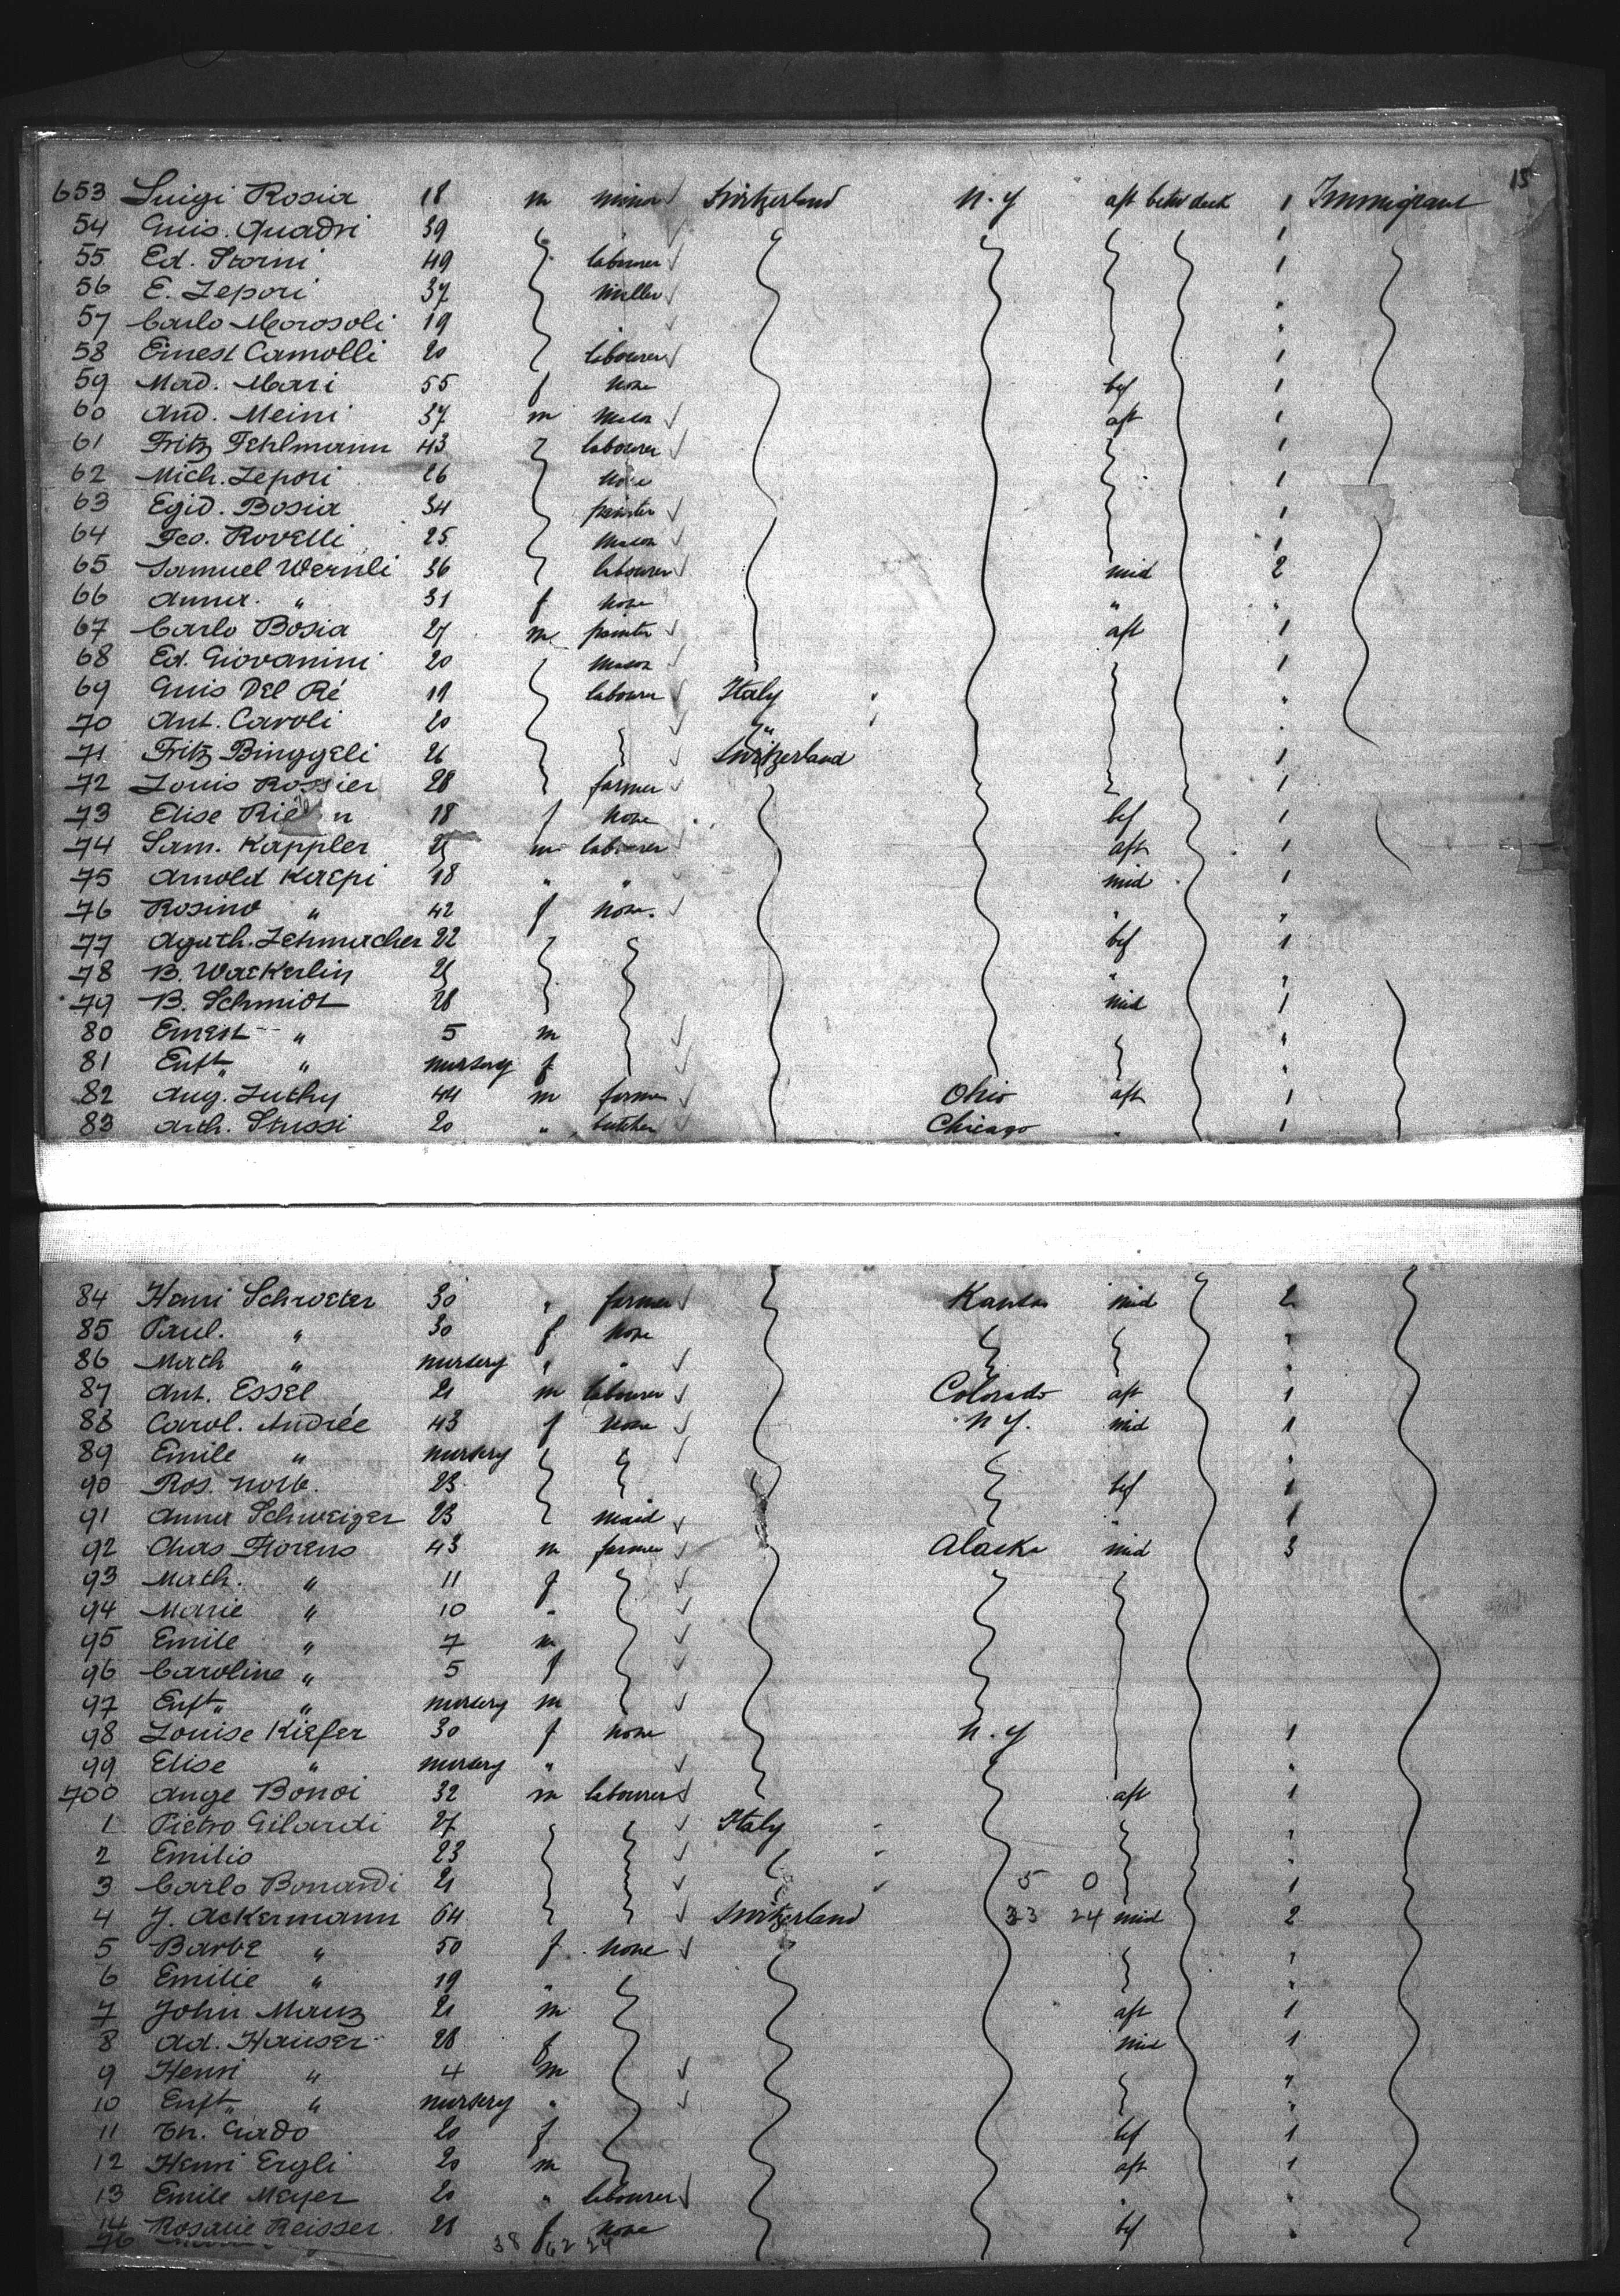 15
653 Luigi Rosia 18 m Switzerland N.Y aft betw deck 1 Immigrant
54 Guis. Quadri 39 1
55 Ed. Storni 49 labourer 1
56 E. Lepori 37 miller "
57 Carlo Morosoli 19 "
58 Ernest Camolli 20 labourer 1
59 Mad. Mari 55 f none bef 1
60 And. Meini 37 m mason aft 1
61 Fritz Fehlmann 43 labourer 1
62 Mich. Lepori 26 none 1
63 Egid. Bosia 34 painter 1
64 Feo. Rovelli 25 mason 1
65 Samuel Wernli 36 labourer mid 2
66 Anna " 31 f none " "
67 Carlo Bosia 27 m painter aft 1
68 Ed. Giovanini 20 mason 1
69 Guis Del Ré 19 labourer Italy "
70 Ant. Caroli 20 " "
71 Fritz Binggeli 26 Switzerland 1
72 Louis Rossier 28 farmer 1
73 Elise 18 f none bef 1
74 Sam. Kappler m labourer aft 1
75 Arnold Kaepi 18 " " mid 1
76 Rosina " 42 f none " "
77 Agath. Lehmacher 22 bef 1
78 B. Wackerlin " "
79 B. Schmidt 28 mid 1
80 Ernest " 5 m "
81 Enft " nursery f "
82 Aug. Luthy 44 m farmer Ohio aft 1
83 Arth. Stussi 20 " butcher Chicago " 1
84 Henri Schroeter 30 " farmer Kansas mid 2
85 Paul. " 30 f none "
86 Math " nursery " " "
87 Ant. Essel 21 m labourer Colorado aft 1
88 Carol. Andrée 43 f none N.Y. mid 1
89 Emile " nursery "
90 Ros. 23 bef 1
91 Anna Schweizer 23 maid " 1
92 Chas Florens 43 m farmer Alaska mid 3
93 Math. " 11 f
94 Marie " 10 "
95 Emile " 7 m
96 Caroline " 5 f
97 Enft " nursery m
98 Louise Kiefer 30 f none N.Y 1
99 Elise " nursery " "
700 Ange Bonoi 32 m labourer aft 1
1 Pietro Gilardi 27 Italy "
2 Emilio 23 "
3 Carlo Bonardi 21 5 0 1
4 J. Ackermann 64 Switzerland 33 24 mid 2
5 Barbe " 50 f none "
6 Emilie " 19 " "
7 John Manz 21 m aft 1
8 Ad. Hauser 28 f mid 1
9 Henri " 4 m "
10 Enft " nursery " "
11 Gado 20 f bef 1
12 Henri Ergli 20 m aft 1
13 Emile Meyer 20 " labourer " "
14 Rosalie Reisser 28 f none bef "
38 62 24